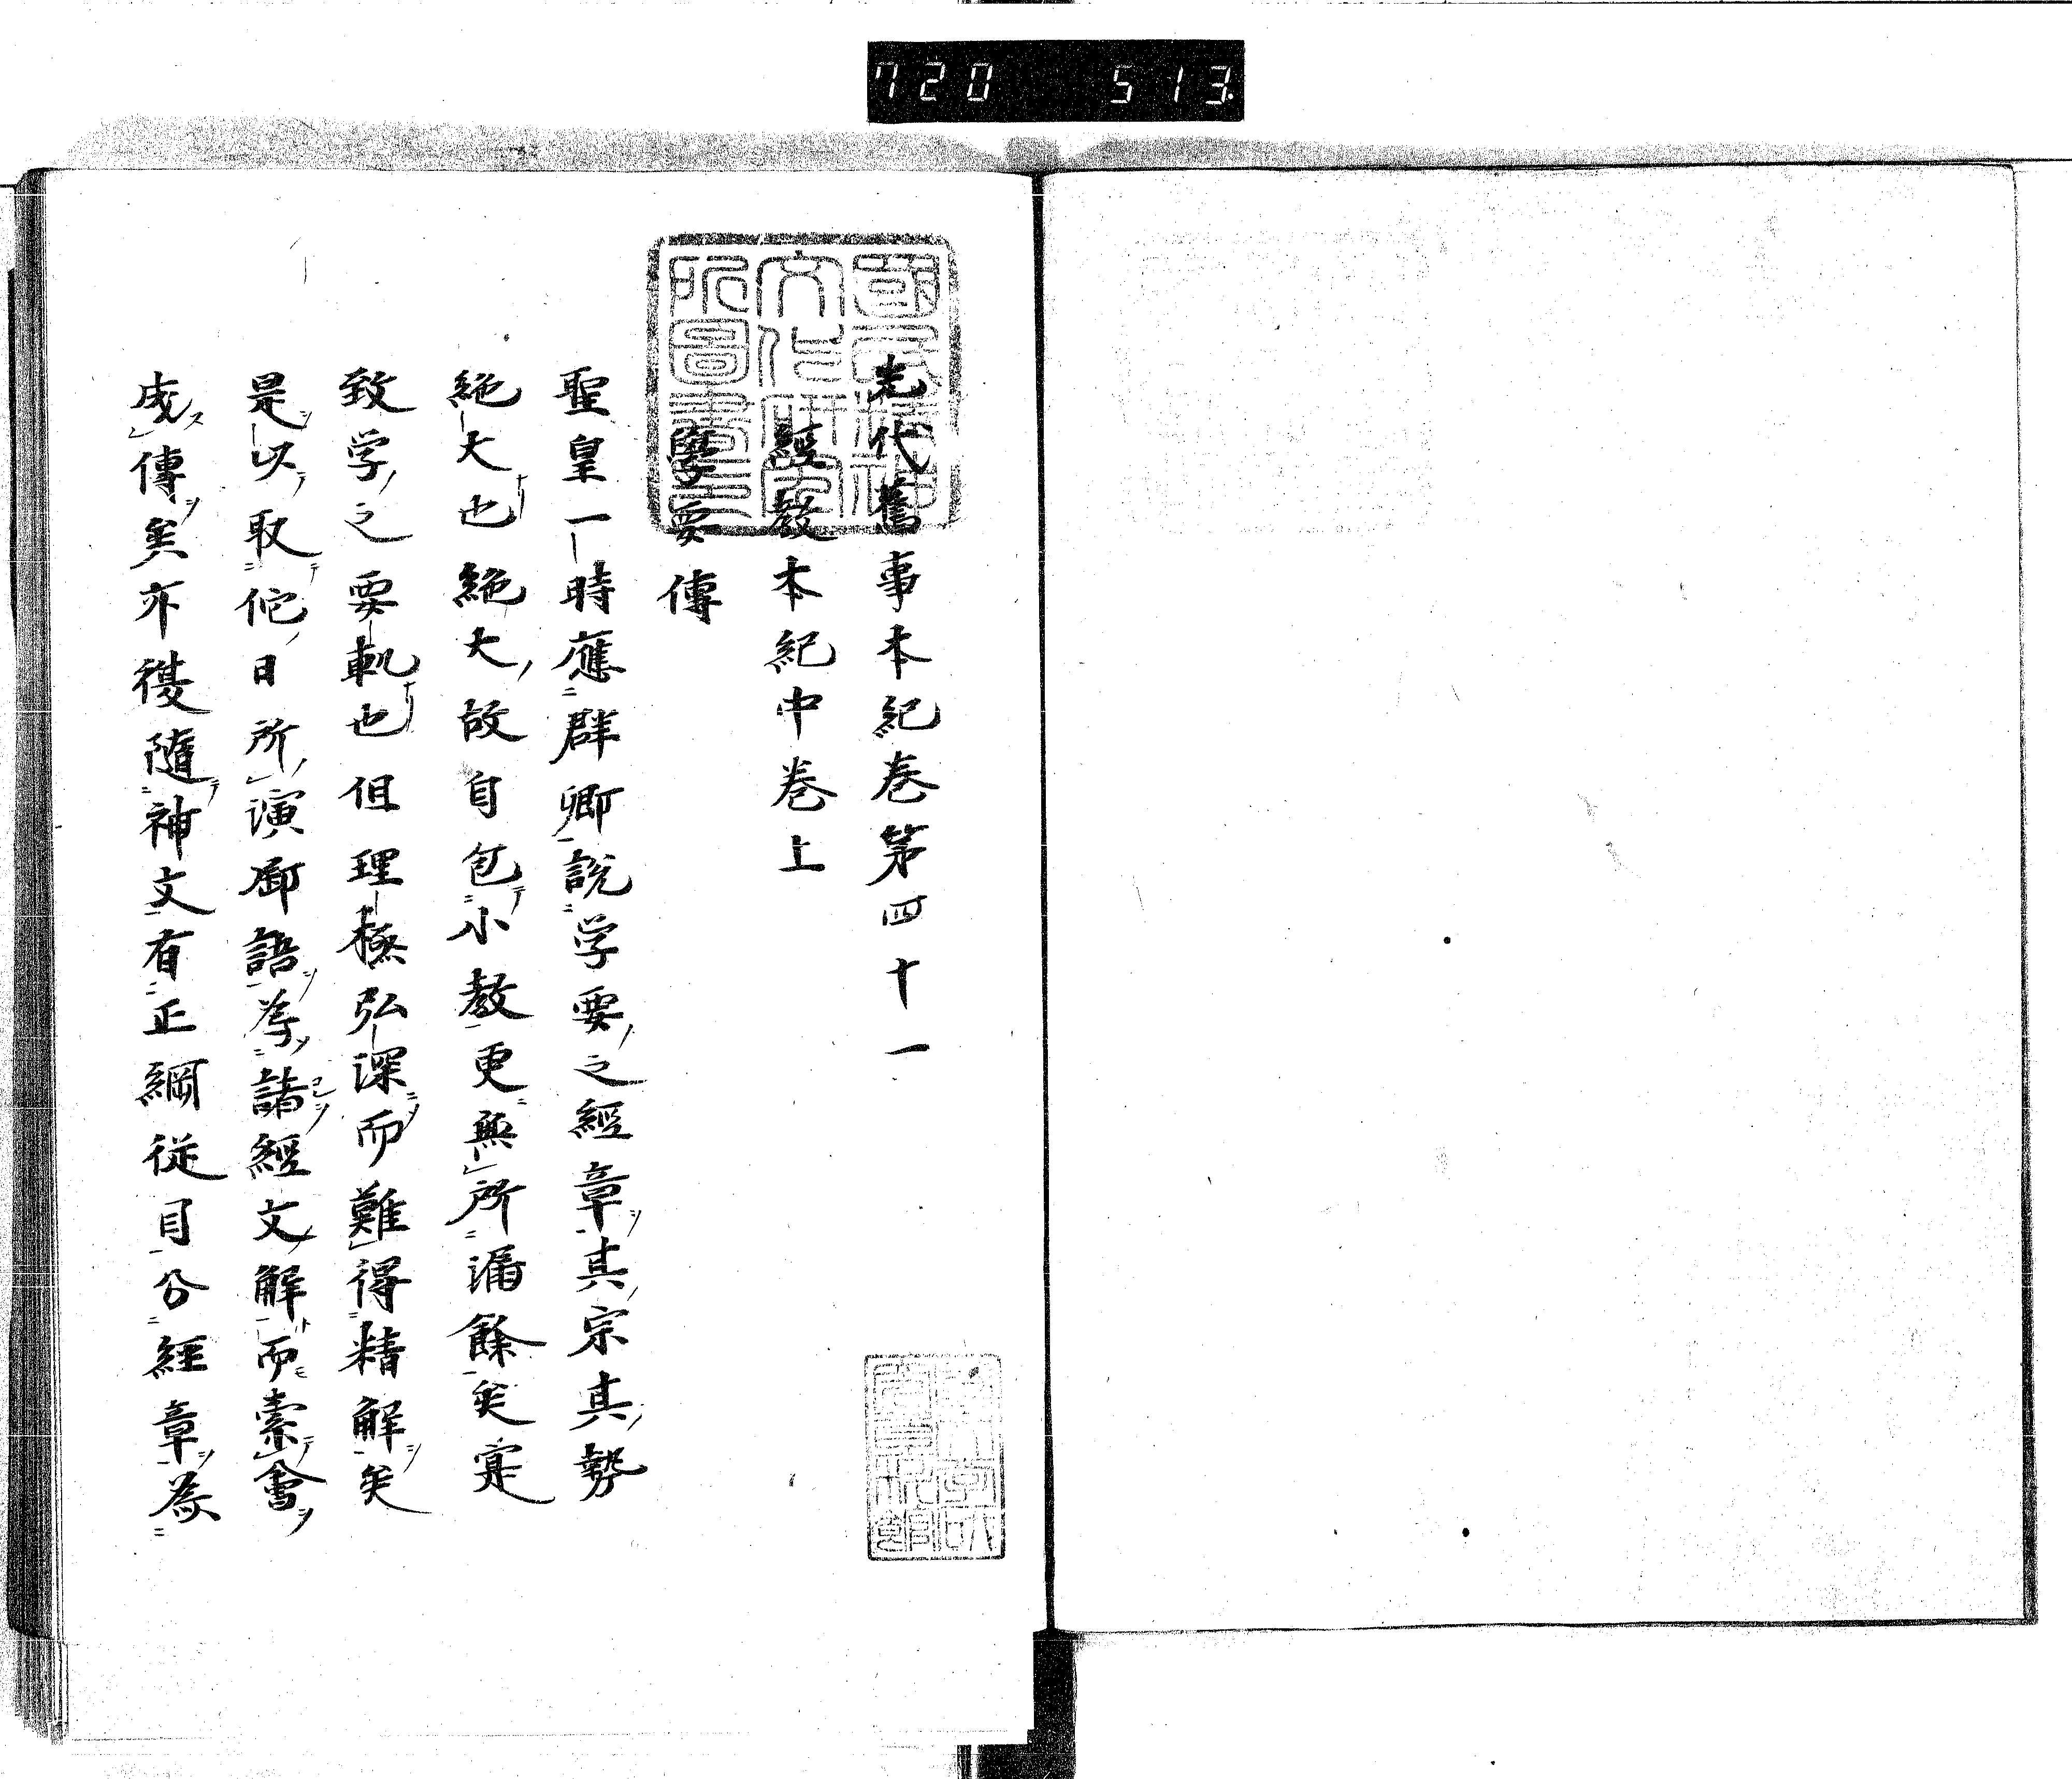 720 513
先代舊事本紀巻第四十一
經教本紀中巻上
學要傳
聖皇一時應群卿說学要之經章其宗其勢
絶大也絶大故自包小教更無所漏餘矣寔
致学之要軌也但理極弘深而難得精解矣
是以取佗日所演御語為諸經文解而索會
成傳矣亦復隨神文有正綱従目分經章為
國民精神文化研究所圖書之印